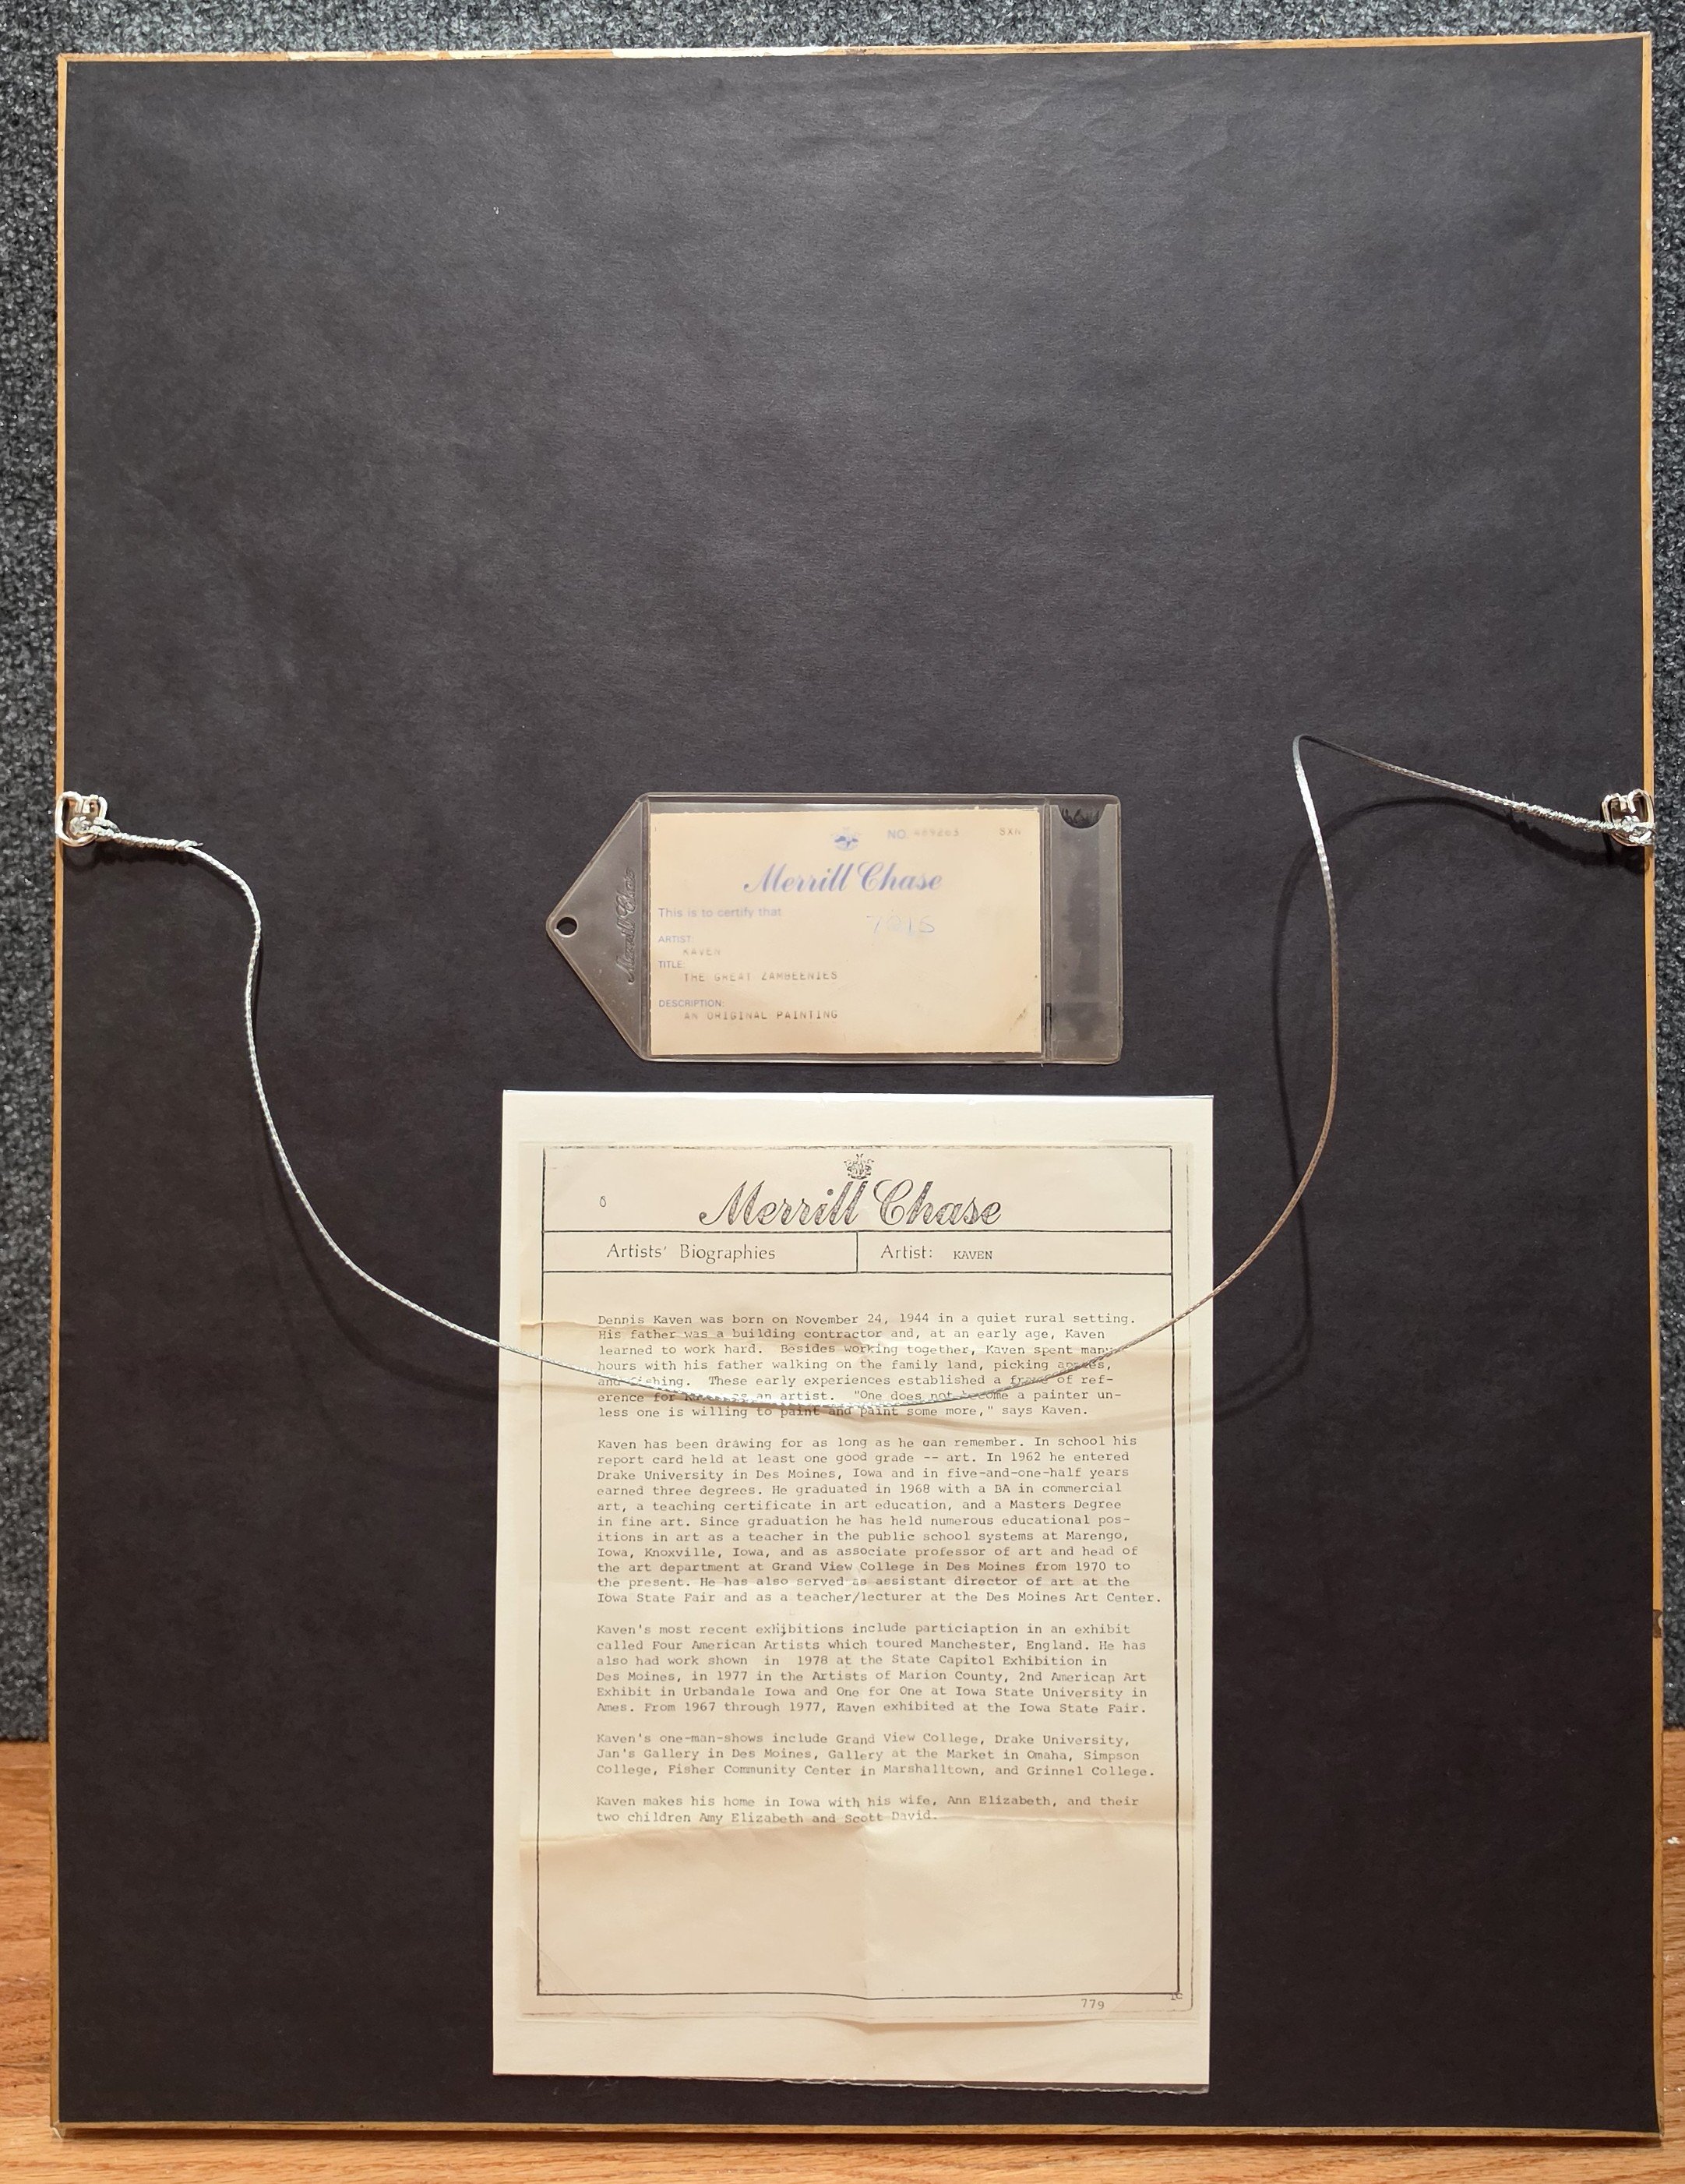 NO.
SXN
Merrill Chase
This is to certify that
ARTIST:
KAVEN
TITLE:
THE GREAT ZAMBEENIES
DESCRIPTION:
AN ORIGINAL PAINTING
Merrill Chase
Merrill Chase
Artists' Biographies
Artist: KAVEN
Dennis Kaven was born on November 24, 1944 in a quiet rural setting.
His father was a building contractor and, at an early age, Kaven
learned to work hard. Besides working together, Kaven spent many
hours with his father walking on the family land, picking apples,
and fishing. These early experiences established a frame of ref-
erence for Kaven as an artist. "One does not become a painter un-
less one is willing to paint and paint some more," says Kaven.
Kaven has been drawing for as long as he can remember. In school his
report card held at least one good grade -- art. In 1962 he entered
Drake University in Des Moines, Iowa and in five-and-one-half years
earned three degrees. He graduated in 1968 with a BA in commercial
art, a teaching certificate in art education, and a Masters Degree
in fine art. Since graduation he has held numerous educational pos-
itions in art as a teacher in the public school systems at Marengo,
Iowa, Knoxville, Iowa, and as associate professor of art and head of
the art department at Grand View College in Des Moines from 1970 to
the present. He has also served as assistant director of art at the
Iowa State Fair and as a teacher/lecturer at the Des Moines Art Center.
Kaven's most recent exhibitions include particiaption in an exhibit
called Four American Artists which toured Manchester, England. He has
also had work shown in 1978 at the State Capitol Exhibition in
Des Moines, in 1977 in the Artists of Marion County, 2nd American Art
Exhibit in Urbandale Iowa and One for One at Iowa State University in
Ames. From 1967 through 1977, Kaven exhibited at the Iowa State Fair.
Kaven's one-man-shows include Grand View College, Drake University,
Jan's Gallery in Des Moines, Gallery at the Market in Omaha, Simpson
College, Fisher Community Center in Marshalltown, and Grinnel College.
Kaven makes his home in Iowa with his wife, Ann Elizabeth, and their
two children Amy Elizabeth and Scott David.
779